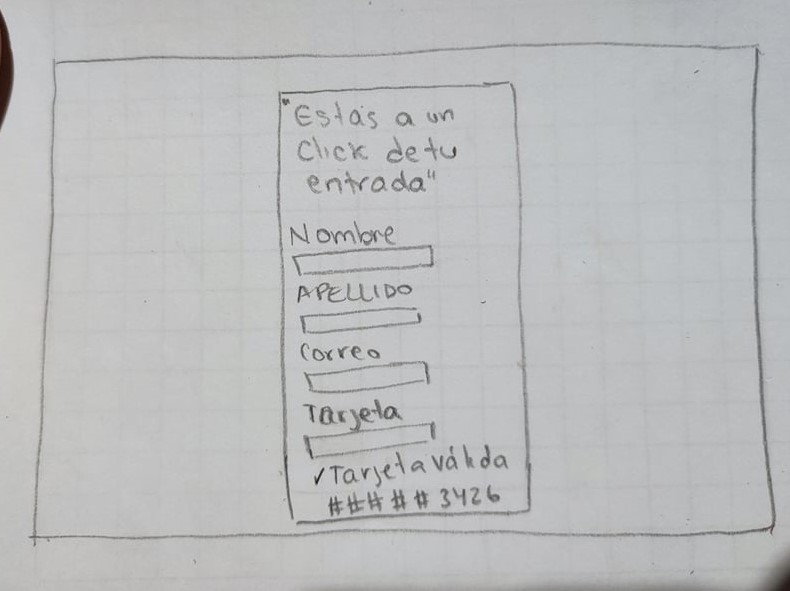 "Estás a un
Click de tu
entrada"
Nombre
APELLIDO
Correo
Tarjeta
✓Tarjeta válida
#####3426